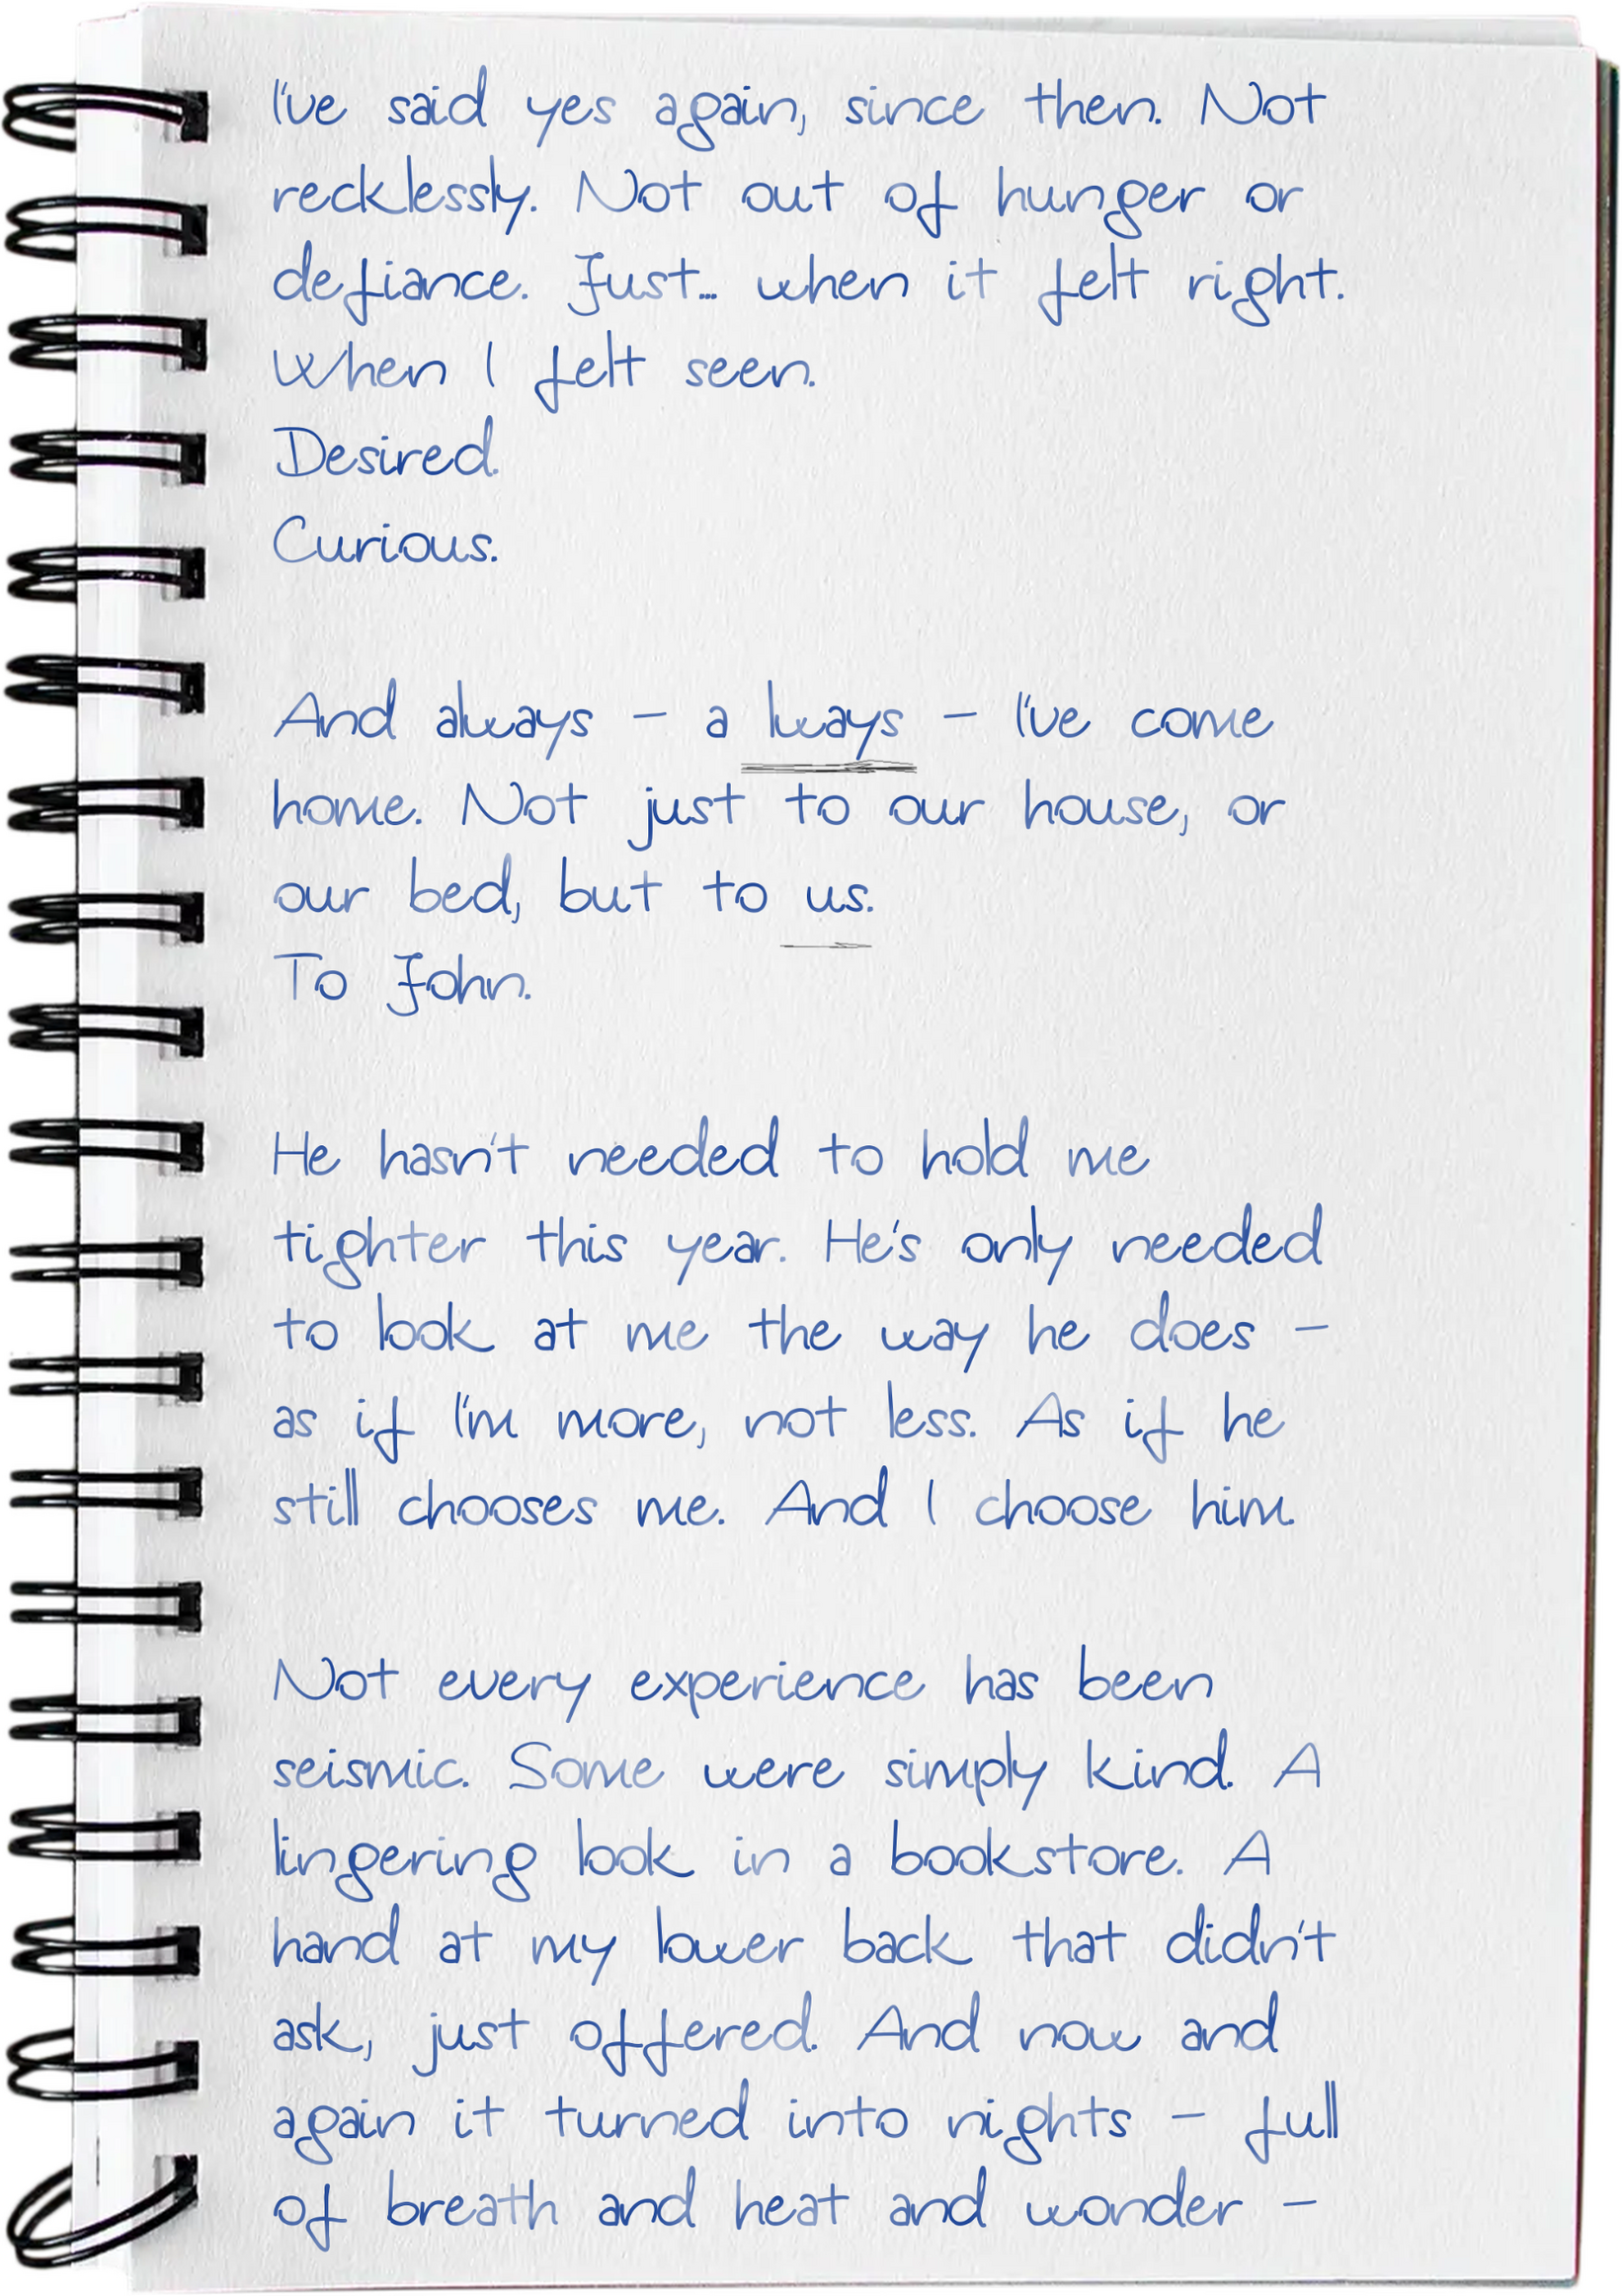 I've said yes again, since then. Not
recklessly. Not out of hunger or
defiance. Just... when it felt right.
When I felt seen.
Desired.
Curious.
And always – a lways – I've come
home. Not just to our house, or
our bed, but to us.
To John.
He hasn't needed to hold me
tighter this year. He's only needed
to look at me the way he does –
as if I'm more, not less. As if he
still chooses me. And I choose him.
Not every experience has been
seismic. Some were simply kind. A
lingering look in a bookstore. A
hand at my lower back that didn't
ask, just offered. And now and
again it turned into nights – full
of breath and heat and wonder –